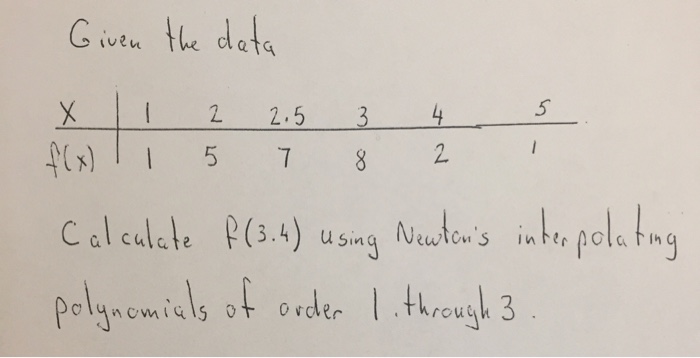 Given the data
x 1 2 2.5 3 4 5
f(x) 1 5 7 8 2 1
Calculate f(3.4) using Newton's interpolating
polynomials of order 1.through 3.